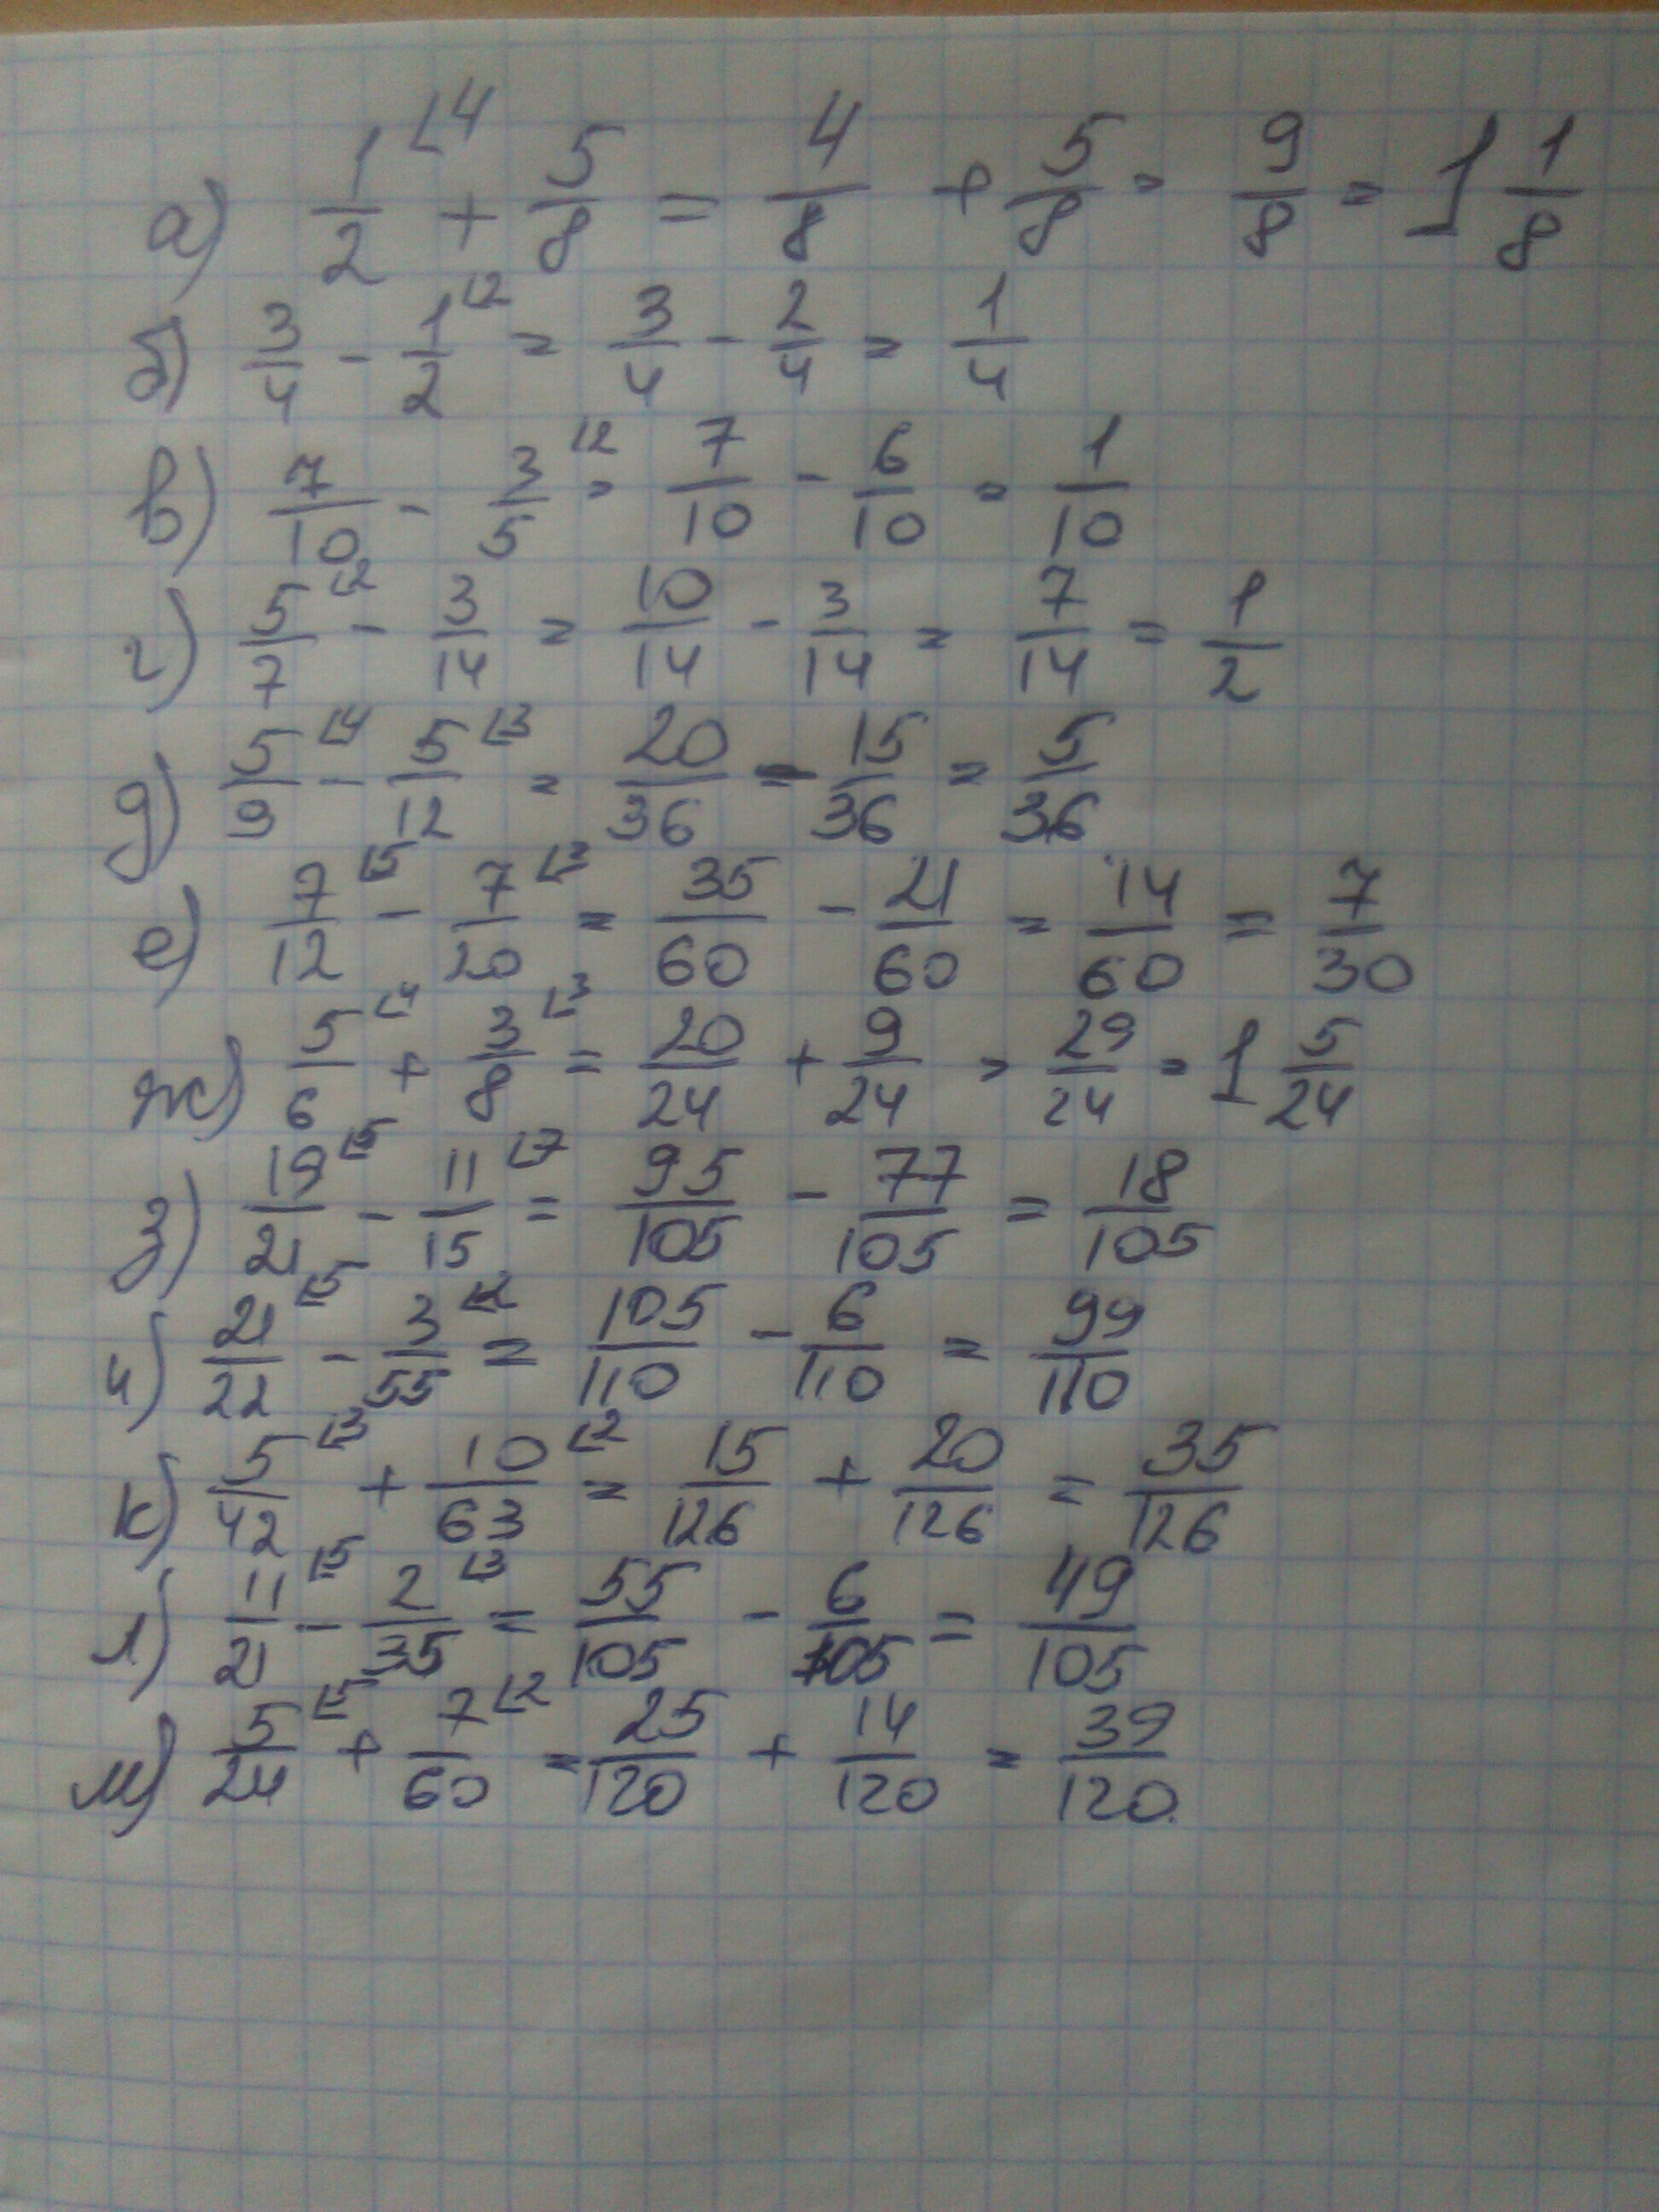 а) 1/2 ⌊4 + 5/8 = 4/8 + 5/8 = 9/8 = 1 1/8
б) 3/4 - 1/2 ⌊2 = 3/4 - 2/4 = 1/4
в) 7/10 - 3/5 ⌊2 = 7/10 - 6/10 = 1/10
г) 5/7 ⌊2 - 3/14 = 10/14 - 3/14 = 7/14 = 1/2
д) 5/9 ⌊4 - 5/12 ⌊3 = 20/36 - 15/36 = 5/36
е) 7/12 ⌊5 - 7/20 ⌊3 = 35/60 - 21/60 = 14/60 = 7/30
ж) 5/6 ⌊4 + 3/8 ⌊3 = 20/24 + 9/24 = 29/24 = 1 5/24
з) 19/21 ⌊5 - 11/15 ⌊7 = 95/105 - 77/105 = 18/105
и) 21/22 ⌊5 - 3/55 ⌊2 = 105/110 - 6/110 = 99/110
к) 5/42 ⌊3 + 10/63 ⌊2 = 15/126 + 20/126 = 35/126
л) 11/21 ⌊5 - 2/35 ⌊3 = 55/105 - 6/105 = 49/105
м) 5/24 ⌊5 + 7/60 ⌊2 = 25/120 + 14/120 = 39/120